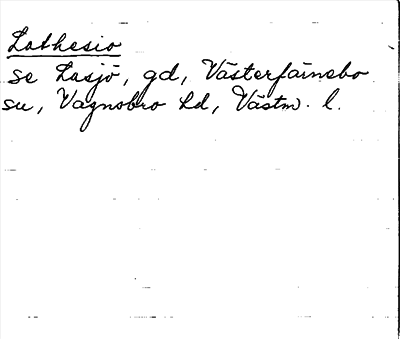 Lathesio
se Lasjö, gd, Västerfärnebo
su, Vagnsbro hd, Västm. l.